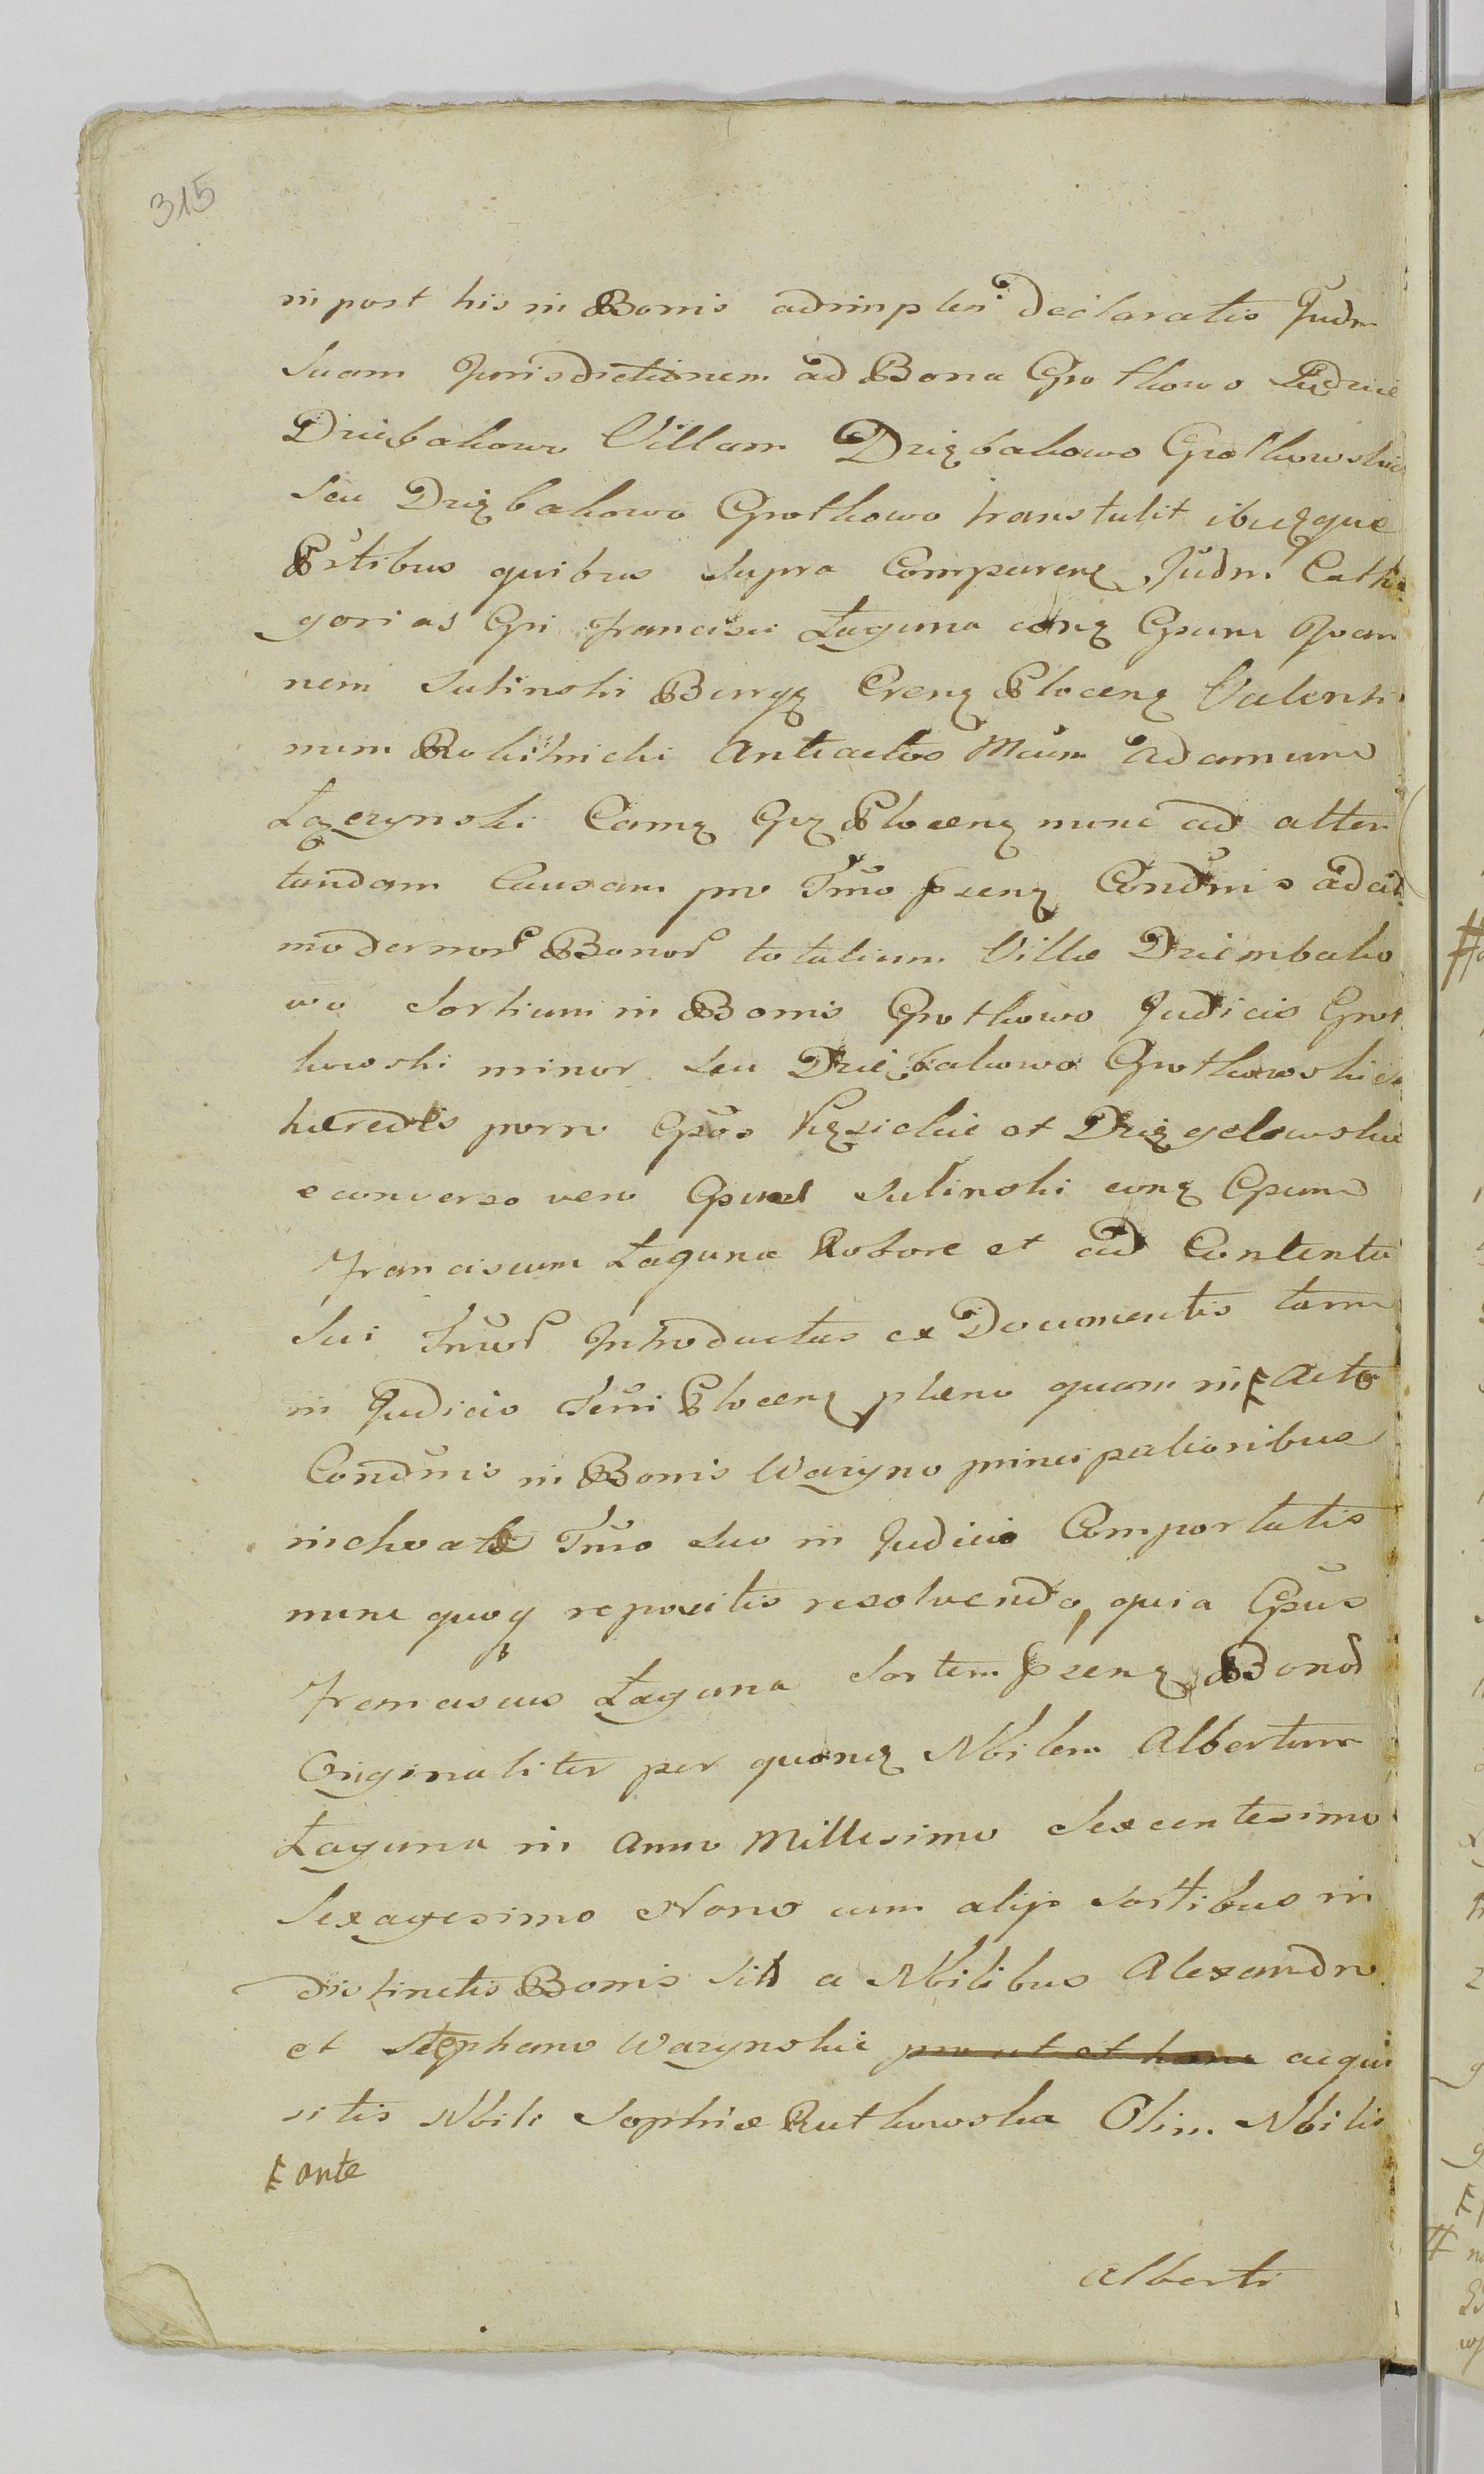 315
in post his in Bonis adimpleri declaratis Judm
suam Jurisdictionem ad Bona Grothowo Ludzice
Dziębakowo Villam Dziębakowo Grothowskie
seu Dziębakowo Grothowo transtulit ibiq̃que
Ptibus quibus supra Comparenꝫ Judm Cathe
gorias Gsi Francisci Łaguna conꝫ Gsum Joan
nem Sulinski Burgꝫ Crenꝫ Plocenꝫ Valenti
num Rokitnicki Anteactos Mcum Adamum
Łączynski Camꝫ Gꝫ Plocenꝫ nunc ad atten
tandam Causam pro Tmo p̃senꝫ Condmis ad cit
modernor Bonor totalium Villæ Dziembako
wo Sortium in Bonis Grothowo Judicis Grot
kowski minor seu Dziębakowo Grothowskie
hæredes porro Gsos et
e converso vero Gsus Sulinski conꝫ Gsum
Franciscum Łaguna Robore et ad Contenta
sui Introductus ex Documentis tam
in Judicio Tẽrri Plocenꝫ pleno quam in Ꞙ Acto
Condmis in Bonis Warzyno principalioribus
inchoato Tmo suo in Judicio Comportatis
nunc quoqꝫ repositis resolvendo, quia Gsus
Franciscus Łaguna Sortem p̃senꝫ Bonor
Originaliter per quonꝫ Nbilem Albertum
Łaguna in Anno Millesimo Sexcentesimo
Sexagesimo Nono cum alijs Sortibus in
distinctis Bonis sitis a Nbilibus Alexandro
et Stephano Warzynskie pro ut et hanc acqui
sitis Nbili Sophiæ Rutkowska Olim Nbilis
Ꞙ ante
Alberti